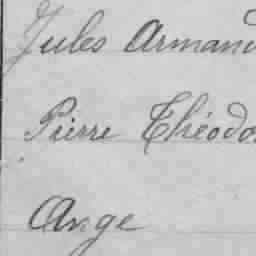 Jules Armand
Pierre Théodo
Ange